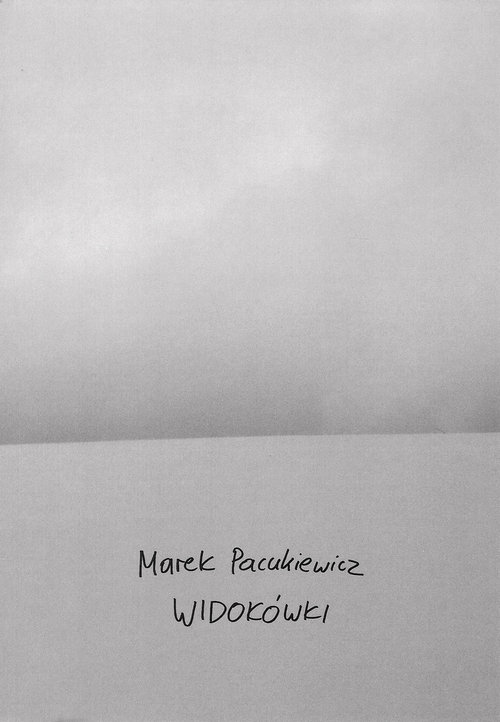 Marek Pacukiewicz
WIDOKÓWKI